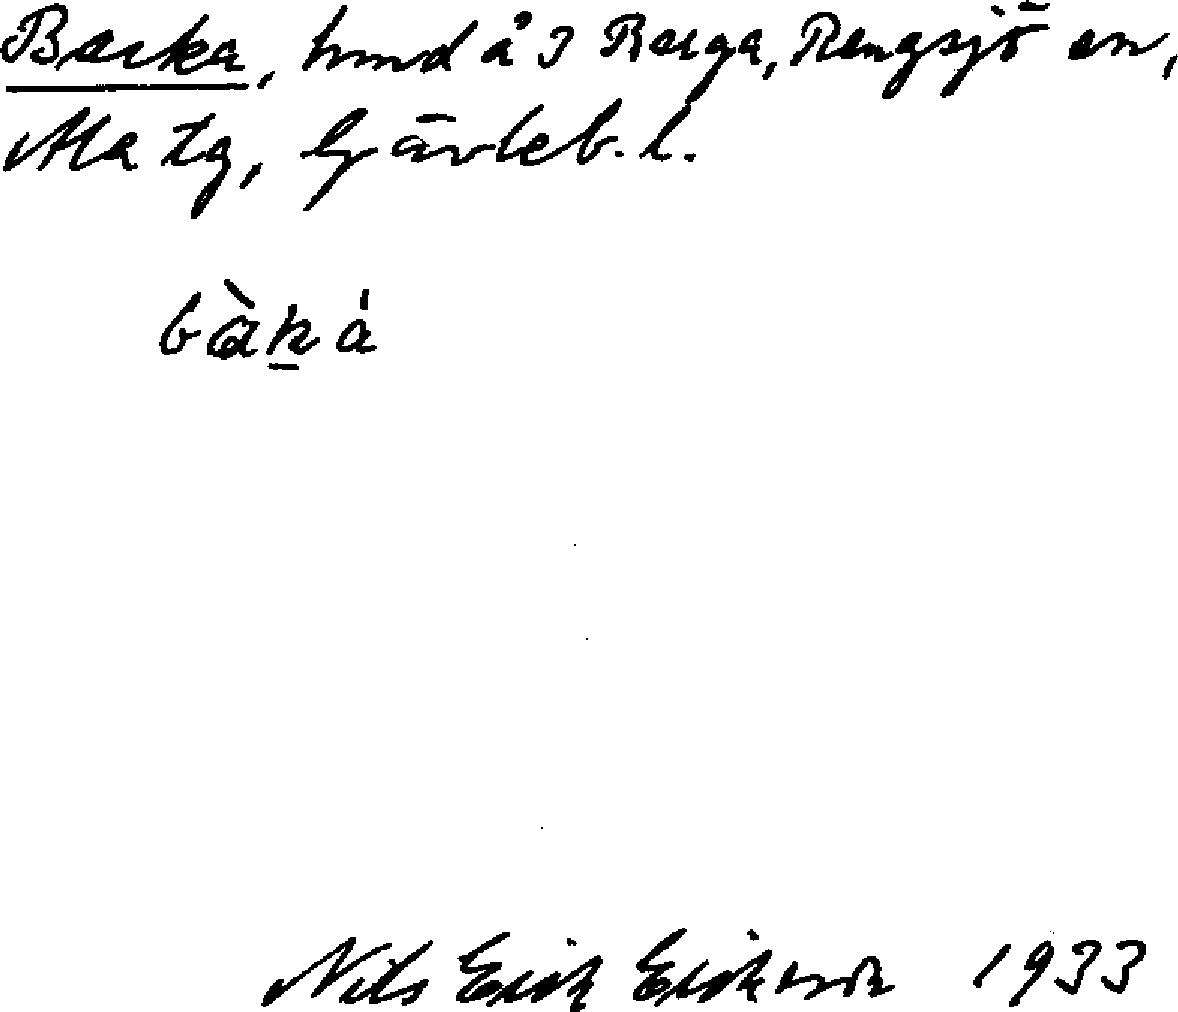 Backa, hmd å 3 Berga, Rengsjö sn,
Ala tg, Gävleb. l.
bàk̲á
Nils Erik Eriksson 1933